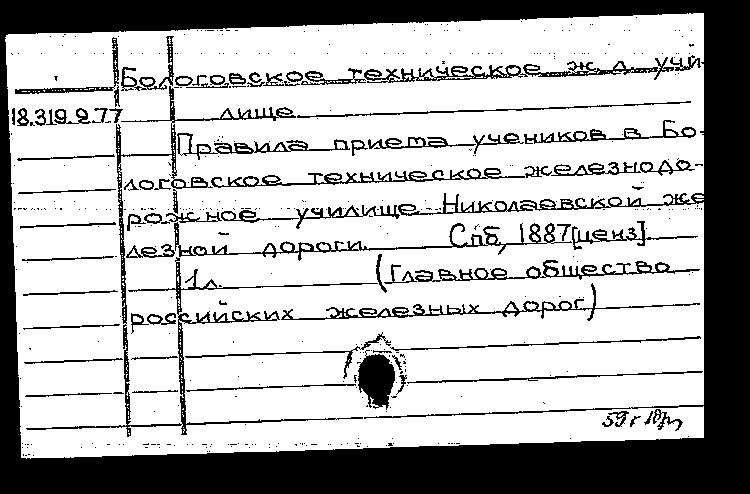 Бологовское техническое ж. д. учи-
18.319.9.77 лище.
Правила приема учеников в Бо-
логовское техническое железнодо-
рожное училище Николаевской же
лезной дороги. Спб, 1887[ценз].
1л. (Главное общество
российских железных дорог)
59 г